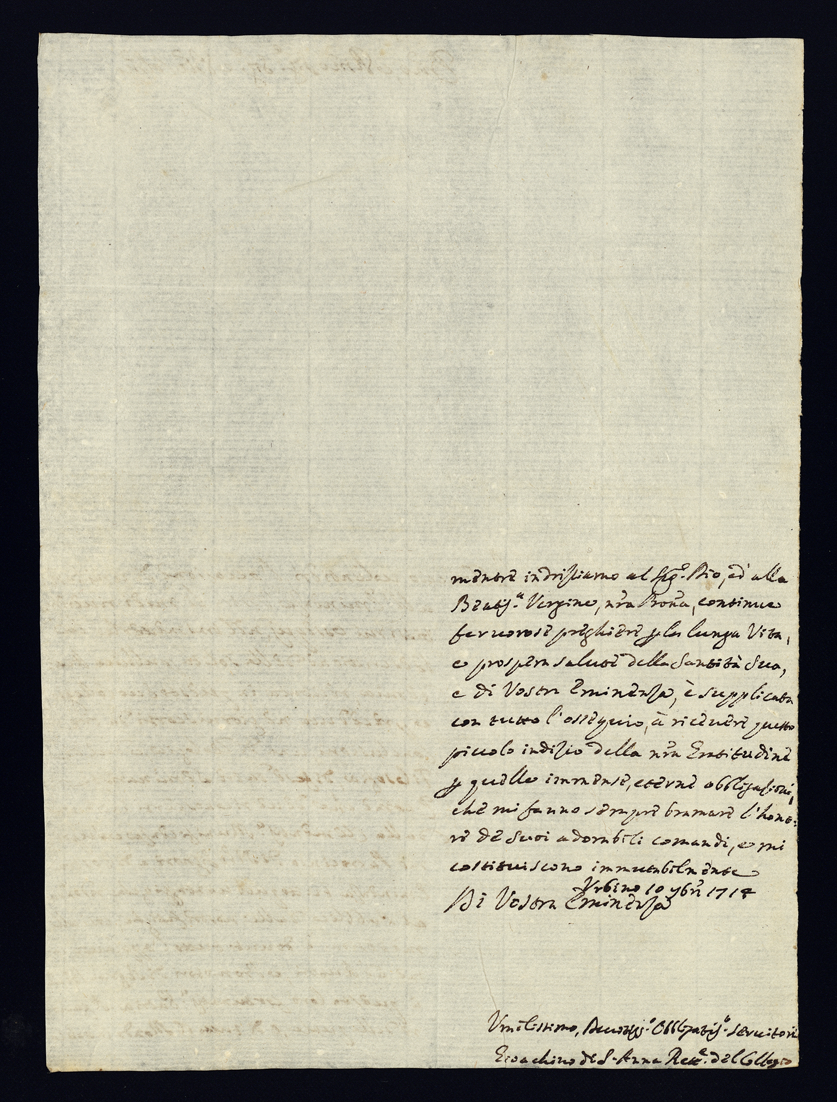 mentre indriziamo al Sig.r Dio, ed' alla
Beatis.a Vergine, nr̃a Prona, continue
fervorose preghiere p la lunga Vita,
e prospera salute della Santità Sua,
e di Vostra Eminenza, è supplicata
con tutto l'ossequio, à ricevere questo
piccolo indizio della nr̃a Gratitudine
p quelle immense, eterne obbligazioni,
che mi fanno sempre bramare l'hono-
re de suoi adorabili comandi, e mi
costituiscono immutabilmente
Urbino 10 9bre 1714
Di Vostra Eminenza
Umilissimo, Devotis.o Obbligatis.o Servitore
Gioachino di S. Anna Rett.e del Collegio